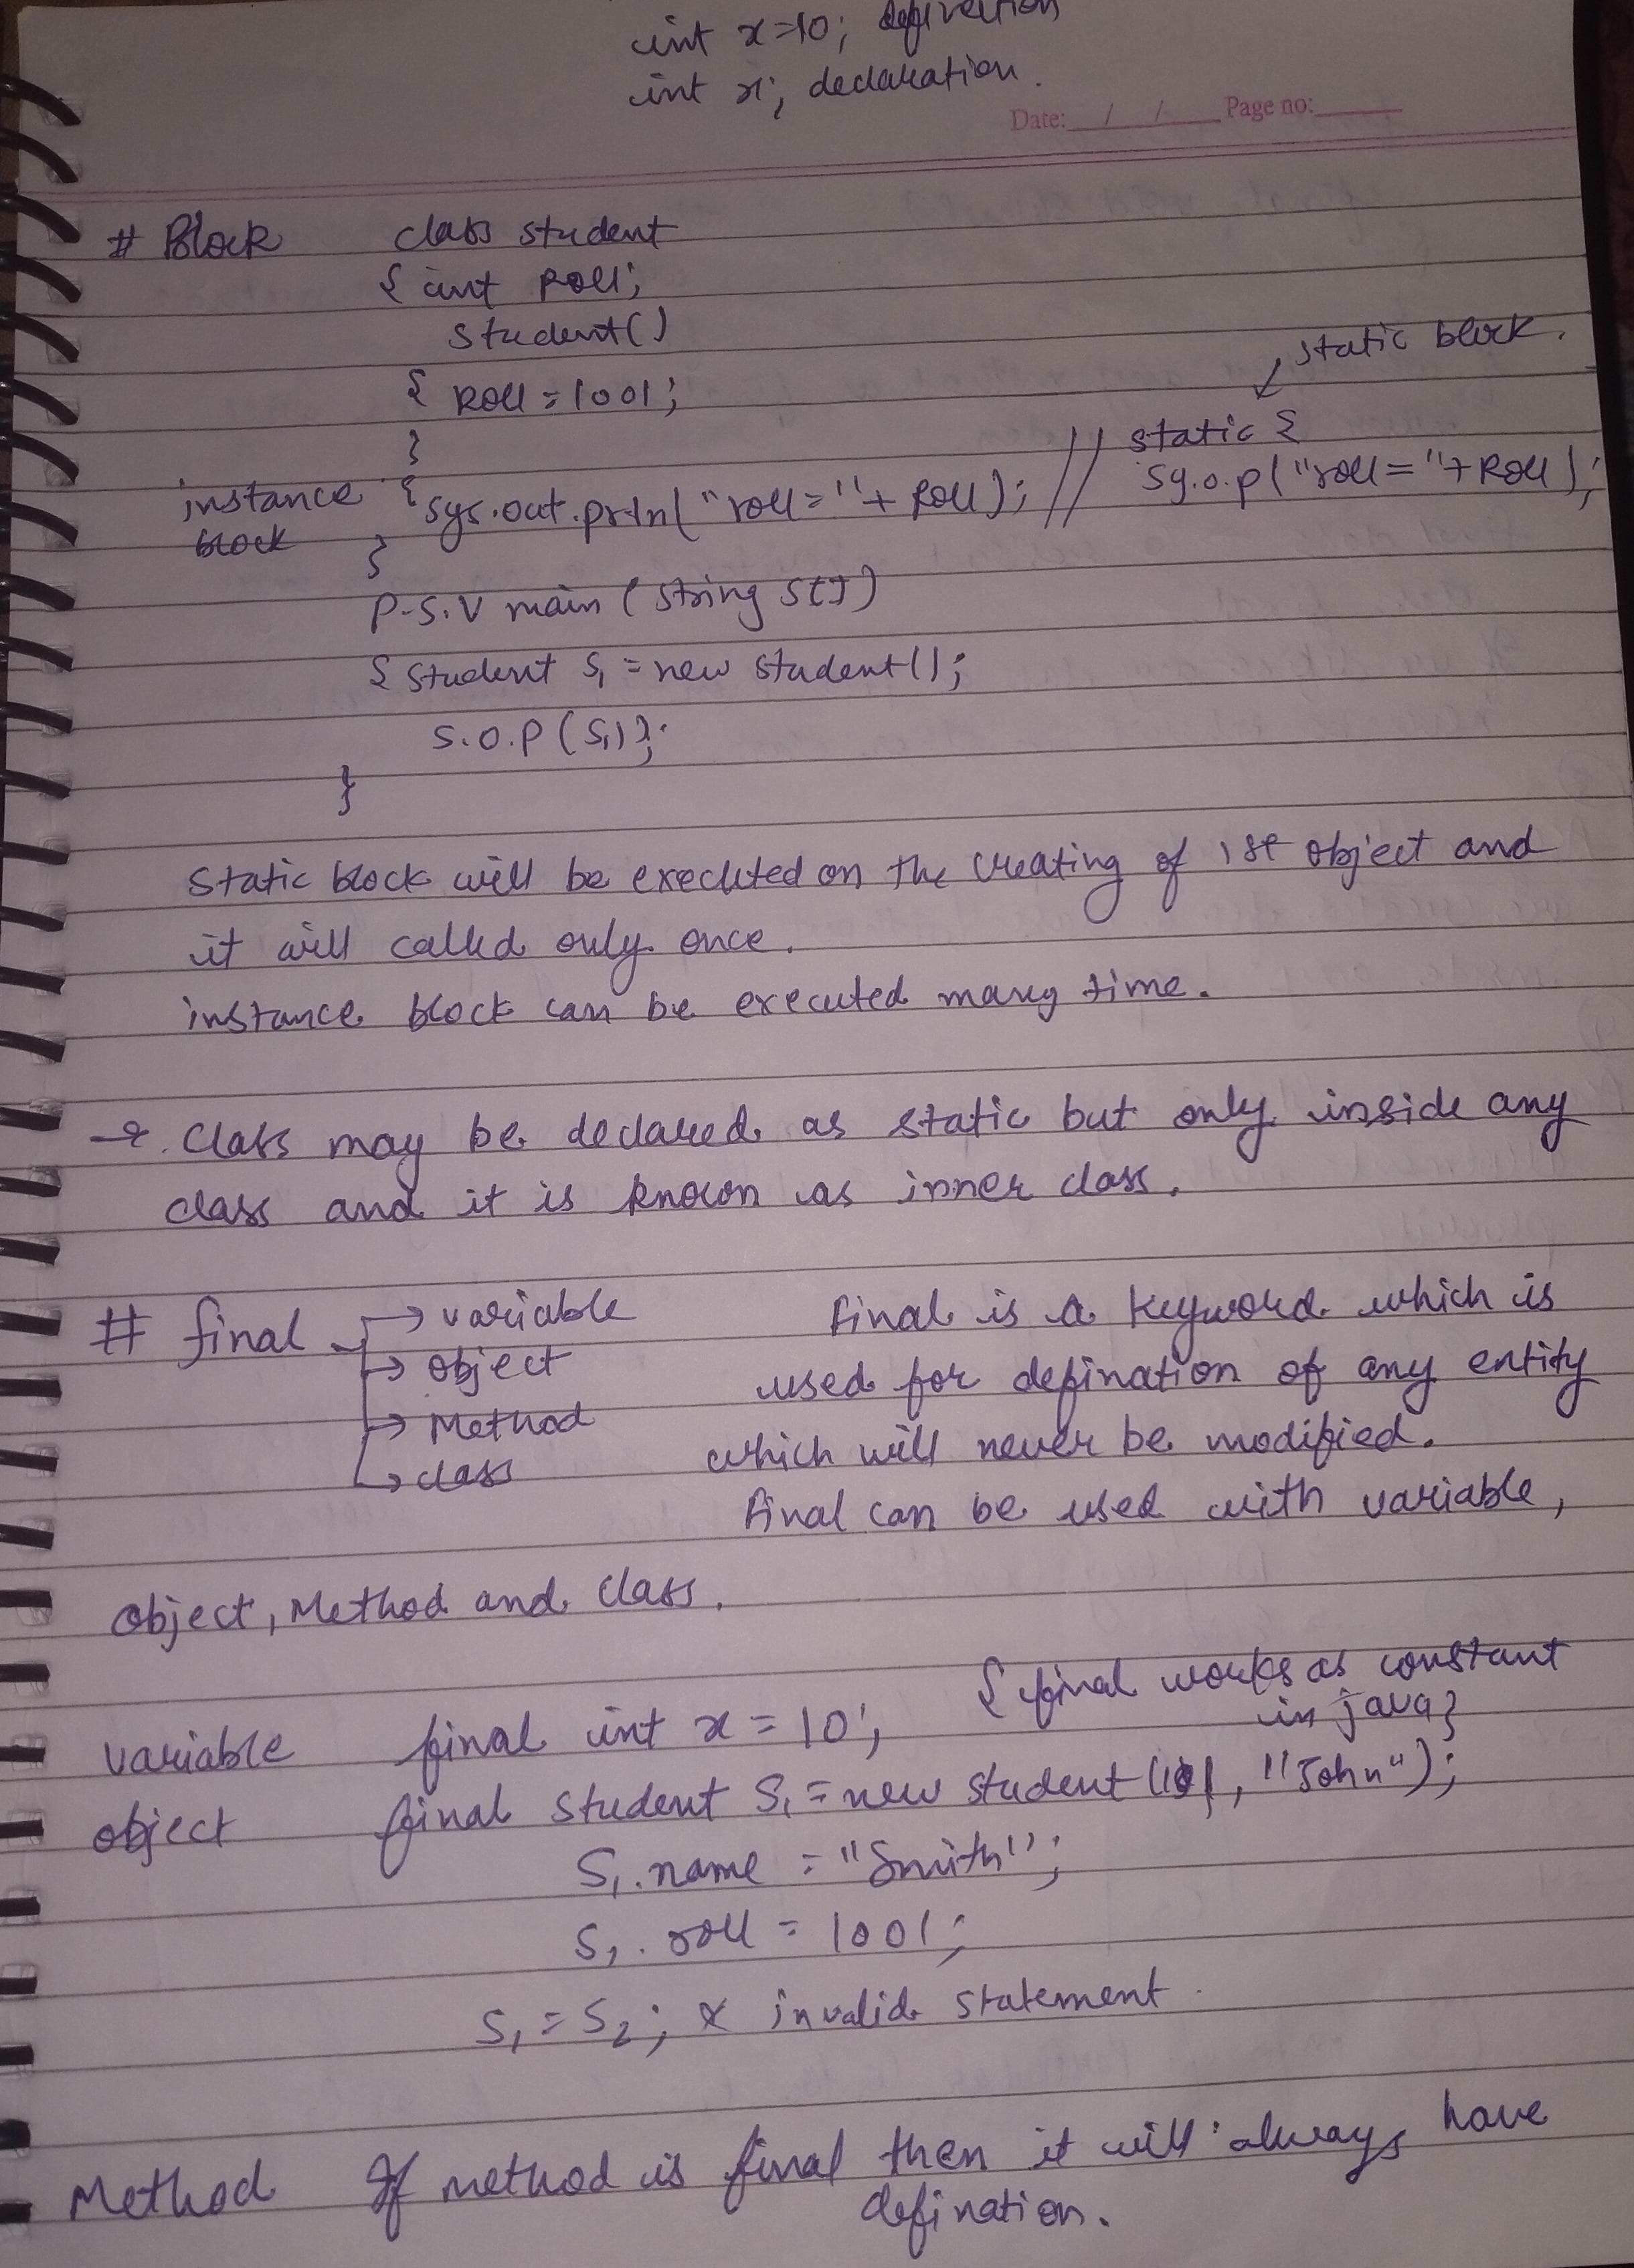 int x=10; defination
int x; declaration.
Date: / / Page no:
# Block class student
{ int Roll;
student()
{ Roll = 1001;
}
static block.
instance { sys.out.prtln("roll="+Roll); // static {
block sy.o.p("roll="+Roll);
}
P.S.V main (string s[])
{ student S1 = new student();
S.O.P (S1);
}
static block will be executed on the creating of 1st object and
it will called only once.
instance block can be executed many time.
→ Class may be declared as static but only inside any
class and it is known as inner class.
# final → variable final is a keyword which is
→ object used for defination of any entity
→ Method which will never be modified.
→ class final can be used with variable,
object, Method and class.
variable final int x = 10; { final works as constant
in java}
object final student S1 = new student (101, "John");
S1.name = "Smith";
S1.roll = 1001;
S1 = S2; x invalid statement.
Method If method is final then it will always have
defination.